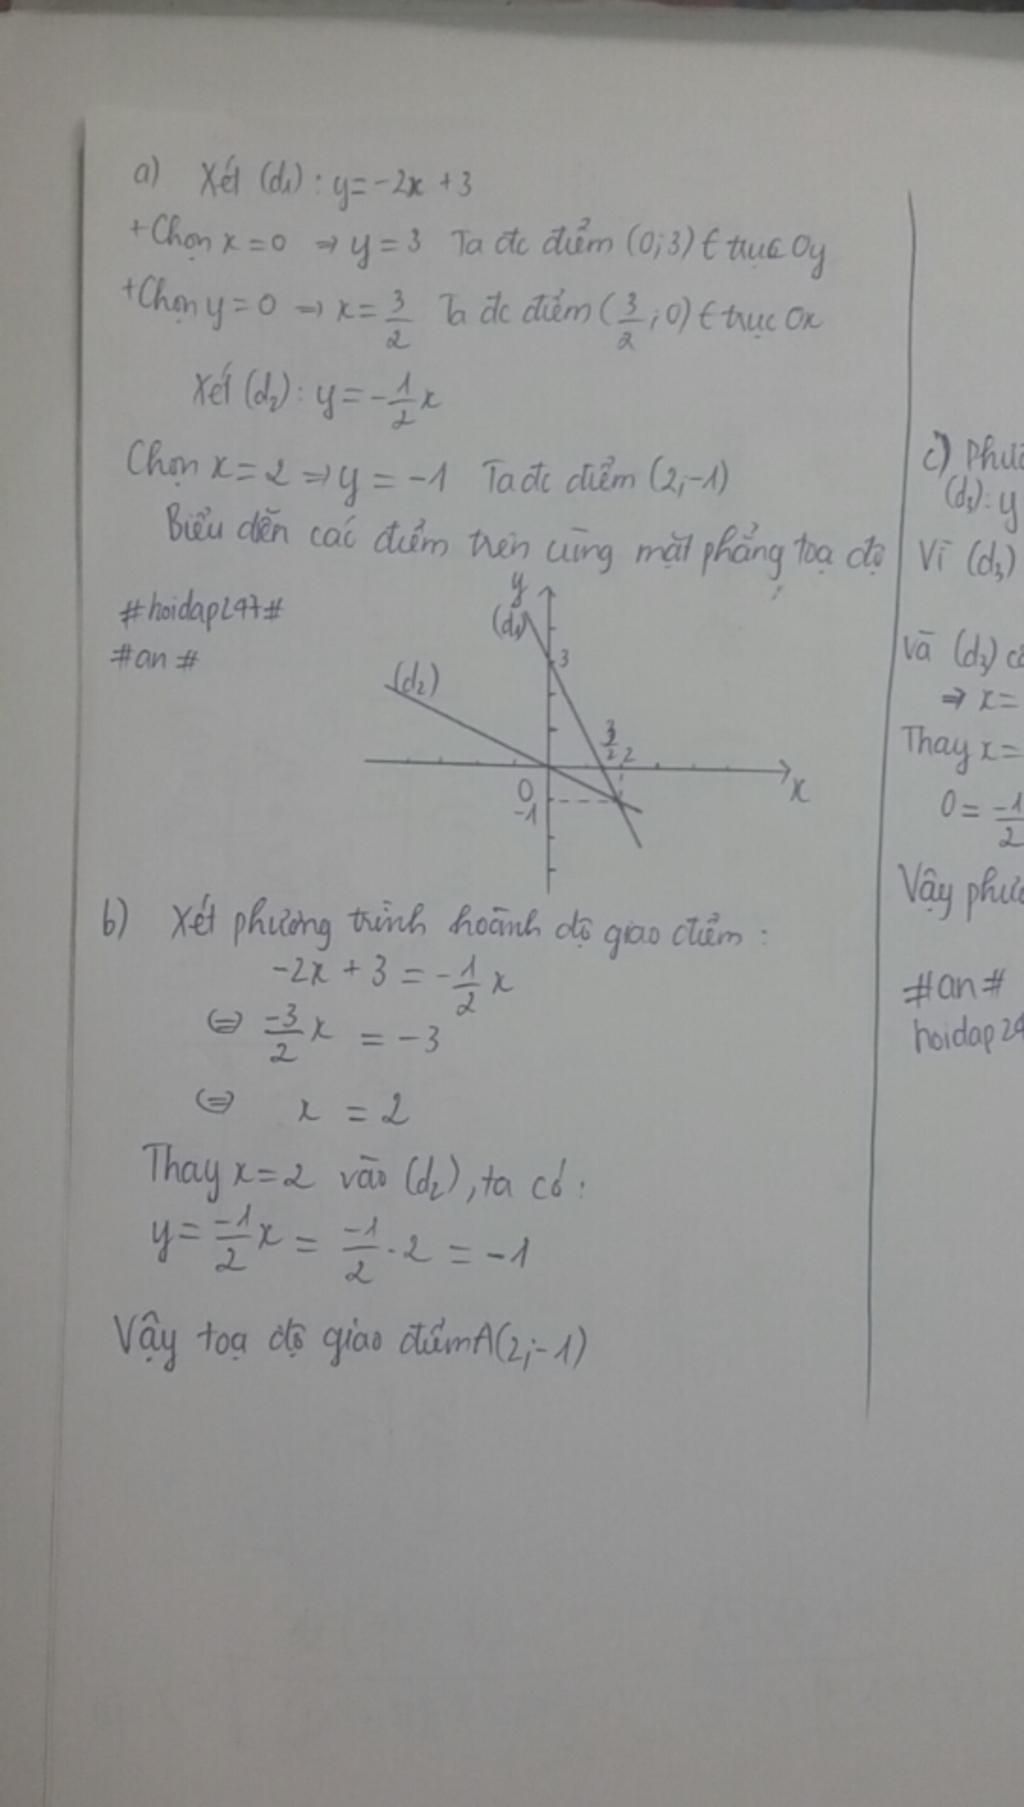 a) Xét (d₁): y = -2x + 3
+ Chọn x = 0 ⇒ y = 3 Ta đc điểm (0;3) ∈ trục Oy
+ Chọn y = 0 ⇒ x = 3/2 Ta đc điểm (3/2;0) ∈ trục Ox
Xét (d₂): y = -1/2 x
Chọn x = 2 ⇒ y = -1 Ta đc điểm (2;-1)
Biểu diễn các điểm trên cùng mặt phẳng toạ độ
#hoidap247#
#an#
y
(d₁)
3
(d₂)
3/2
2
0
-1
x
b) Xét phương trình hoành độ giao điểm:
-2x + 3 = -1/2 x
⇔ -3/2 x = -3
⇔ x = 2
Thay x = 2 vào (d₂), ta có:
y = -1/2 x = -1/2 . 2 = -1
Vậy toạ độ giao điểm A(2;-1)
c) Phươ
(d₃): y
Vì (d₃)
và (d₃) c
⇒ x =
Thay x =
0 = -1/2
Vậy phươ
#an#
hoidap24